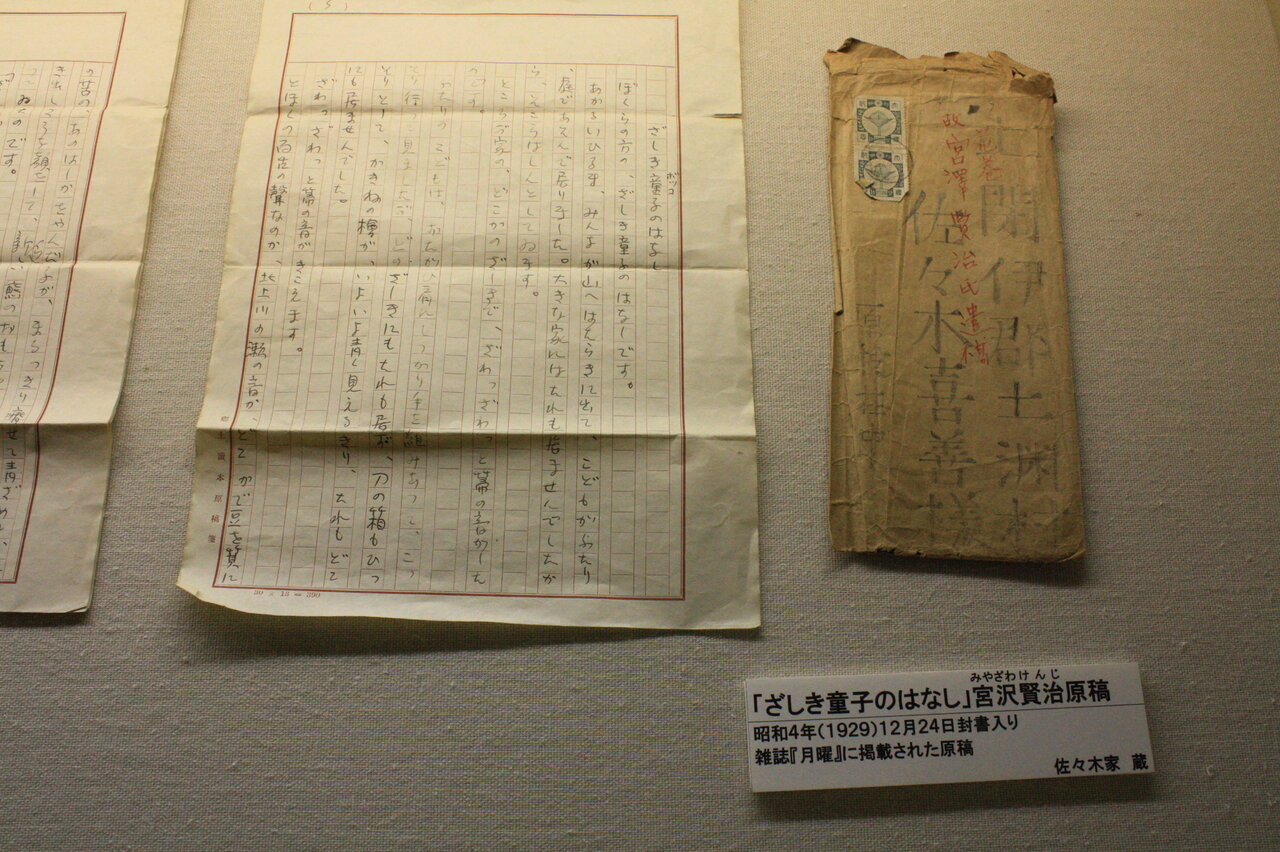 (5)
ざしき童子のはなし
ボッコ
ぼくらの方の、ざしき童子のはなしです。
あかるいひるま、みんなが山へはたらきに出て、こどもがふたり
、庭であそんで居りました。大きな家にはたれも居ませんでしたか
ら、そこらはしんとしてゐます。
ところが家の、どこかのざしきで、ざわっざわっと箒の音がした
のです。
ふたりのこどもは、おたがひ肩にしっかり手を組みあって、こっ
そり行って見ましたが、どのざしきにもたれも居ず、刀の箱もひっ
そりとして、かきねの檜が、いよいよ青く見えるきり、たれもどこ
にも居ませんでした。
ざわっざわっと箒の音がきこえます。
とほくの百舌の聲なのか、北上川の瀬の音か、どこかで豆を箕に
郷土讀本原稿箋
30 × 13 = 390
の苦の、あのはしかをやんだ
き出し
ゐたのです。
まるっきり瘠せて青ざめ
上閉伊郡土淵村
佐々木喜善様
花巻
故宮澤賢治氏遺稿
「ざしき童子のはなし」宮沢賢治原稿
みやざわけんじ
昭和4年(1929)12月24日封書入り
雑誌『月曜』に掲載された原稿
佐々木家 蔵